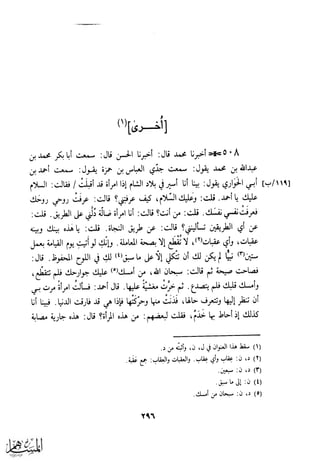 [أُخـــرى](١)
٥٠٨ - أخبرنا محمد قال: أخبرنا الحسن قال: سمعت أبا بكر محمد بن
عبدالله بن محمد يقول: سمعت جدّي العباس بن حمزة يقول: سمعت أحمد بن
[١١٩/ب] أبي الحَوَاري يقول: بينا أنا أسير في بلاد الشام إذا امرأة قد أقبلَتْ / فقالت: السلام
عليك يا أحمد. قلت: وعليك السلام، كيف عرفتني؟ قالت: عرفَتْ روحي روحَك
فعرفَتْ نفسي نفسَك. قلت: من أنت؟ قالت: أنا امرأة ضالّة دُلَّني على الطريق. قلت:
عن أي الطريقين تسأليني؟ قالت: عن طريق النجاة. قلت: يا هذه بينك وبينه
عقبات، وأي عقبات(٢)، لا تُقطع إلاّ بصحة المعاملة. وإنّكِ لو أتيتِ يوم القيامة بعمل
ستين(٣) نبيّاً لم يكن لك أن تتّكلي إلاّ على ما سبق(٤) لكِ في اللوح المحفوظ. قال:
فصاحت صيحة ثم قالت: سبحان الله، من أمسك(٥) عليك جوارحك فلم تتقطّع،
وأمسك عليك قلبك فلم يتصدع. ثم خرّت مغشيّة عليها. قال أحمد: فسألْتُ امرأة مرت بي
أن تنظر إليها وتتعرف حالها، فدَنَتْ منها وحرّكَتْها فإذا هي قد فارقت الدنيا. فبينا أنا
كذلك إذ أحاط بها خَدَمٌ، فقلت لبعضهم: من هذه المرأة؟ قال: هذه جارية مصابة
(١) سقط هذا العنوان في ل، ن، وأثبته من د.
(٢) د، ن: عقاب وأي عقاب. والعقبات والعقاب: جمع عقبة.
(٣) د، ن: سبعين.
(٤) ن: إلى ما سبق.
(٥) د، ن: سبحان من أمسك.
٢٩٦